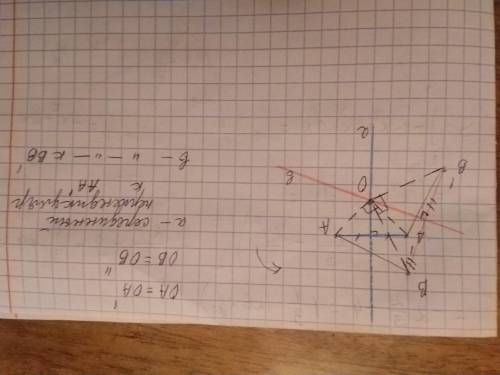 OA = OA'
"
OB = OB'
a - серединный
перпендикуляр
к AA'
b - " - " - к BB'
B
A
A'
O
b
B'
a